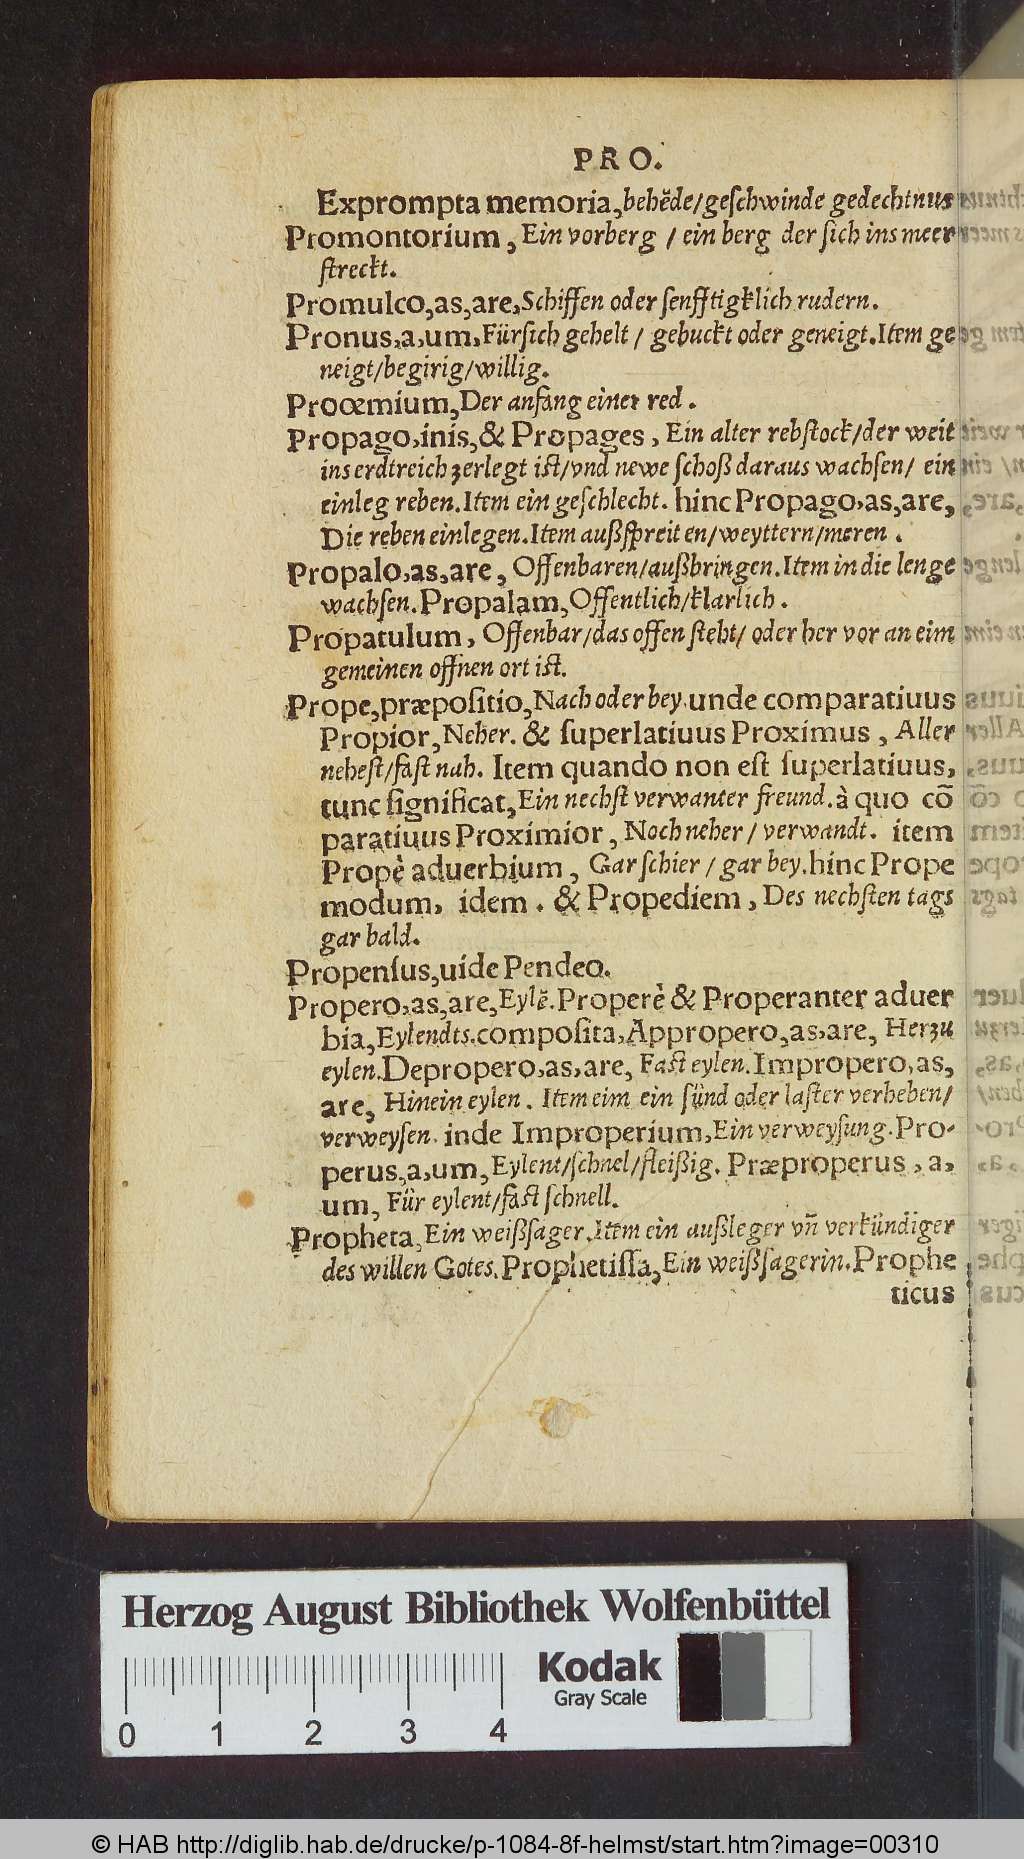 PRO.
Exprompta memoria, behẽde/geſchwinde gedechtnus
Promontorium, Ein vorberg / ein berg der ſich ins meer
ſtreckt.
Promulco,as,are, Schiffen oder ſenfftigklich rudern.
Pronus,a,um, Fürſich gehelt / gebuckt oder geneigt. Item ge
neigt/begirig/willig.
Proœmium, Der anfang einer red.
Propago,inis, & Propages, Ein alter rebſtock/der weit
ins erdtreich zerlegt iſt/vnd newe ſchoß daraus wachſen/ ein
einleg reben. Item ein geſchlecht. hinc Propago,as,are,
Die reben einlegen. Item außſpreiten/weyttern/meren.
Propalo,as,are, Offenbaren/außbringen. Item in die lenge
wachſen. Propalam, Offentlich/klarlich.
Propatulum, Offenbar/das offen ſteht/ oder her vor an eim
gemeinen offnen ort iſt.
Prope,præpoſitio, Nach oder bey. unde comparatiuus
Propior, Neher. & ſuperlatiuus Proximus, Aller
neheſt/faſt nah. Item quando non eſt ſuperlatiuus,
tunc ſignificat, Ein nechſt verwanter freund. à quo cõ
paratiuus Proximior, Noch neher / verwandt. item
Propè aduerbium, Gar ſchier / gar bey. hinc Prope
modum, idem. & Propediem, Des nechſten tags
gar bald.
Propenſus,uide Pendeo.
Propero,as,are, Eylẽ. Properè & Properanter aduer
bia, Eylendts. compoſita, Appropero,as,are, Herzu
eylen. Depropero,as,are, Faſt eylen. Impropero,as,
are, Hinein eylen. Item eim ein ſünd oder laſter verheben/
verweyſen. inde Improperium, Ein verweyſung. Pro-
perus,a,um, Eylent/ſchnel/fleißig. Præproperus, a,
um, Für eylent/faſt ſchnell.
Propheta, Ein weißſager. Item ein außleger vñ verkündiger
des willen Gotes. Prophetiſſa, Ein weißſagerin. Prophe
ticus
Herzog August Bibliothek Wolfenbüttel
Kodak
Gray Scale
0 1 2 3 4
© HAB http://diglib.hab.de/drucke/p-1084-8f-helmst/start.htm?image=00310